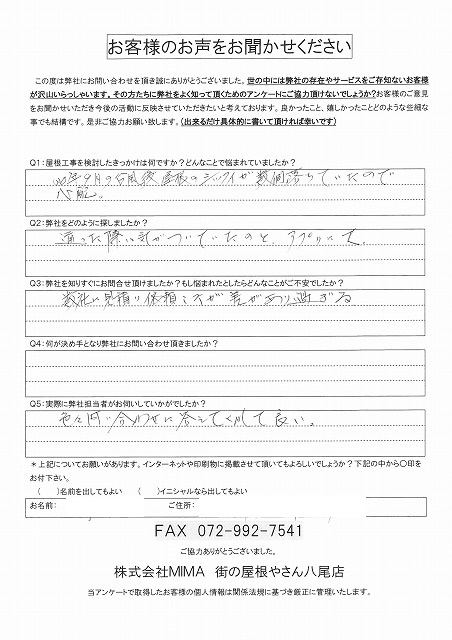 お客様のお声をお聞かせください
この度は弊社にお問い合わせを頂き誠にありがとうございました。世の中には弊社の存在やサービスをご存知ないお客様
が沢山いらっしゃいます。その方たちに弊社をよく知って頂くためのアンケートにご協力頂けないでしょうか？お客様のご意見
をお聞かせいただき今後の活動に反映させていただきたいと考えております。良かったこと、嬉しかったことどのような些細な
事でも結構です。是非ご協力お願い致します。（出来るだけ具体的に書いて頂ければ幸いです）
Q1：屋根工事を検討したきっかけは何ですか？どんなことで悩まれていましたか？
年9月の台風後屋根のシックイが数個落ちていたので
心配。
Q2：弊社をどのように探しましたか？
通った際に気がついていたのと、アプリにて、
Q3：弊社を知りすぐにお問合せ頂けましたか？もし悩まれたとしたらどんなことがご不安でしたか？
数社に見積り依頼 が差があり過ぎる
Q4：何が決め手となり弊社にお問い合わせ頂きましたか？
Q5：実際に弊社担当者がお伺いしていかがでしたか？
色々問い合わせに答えてくれて良い。
＊上記についてお願いがあります。インターネットや印刷物に掲載させて頂いてもよろしいでしょうか？下記の中から〇印を
お付下さい。
（　）名前を出してもよい　（　）イニシャルなら出してもよい
お名前：　ご住所：
FAX 072-992-7541
ご協力ありがとうございました。
株式会社MIMA　街の屋根やさん八尾店
当アンケートで取得したお客様の個人情報は関係法規に基づき厳正に管理いたします。